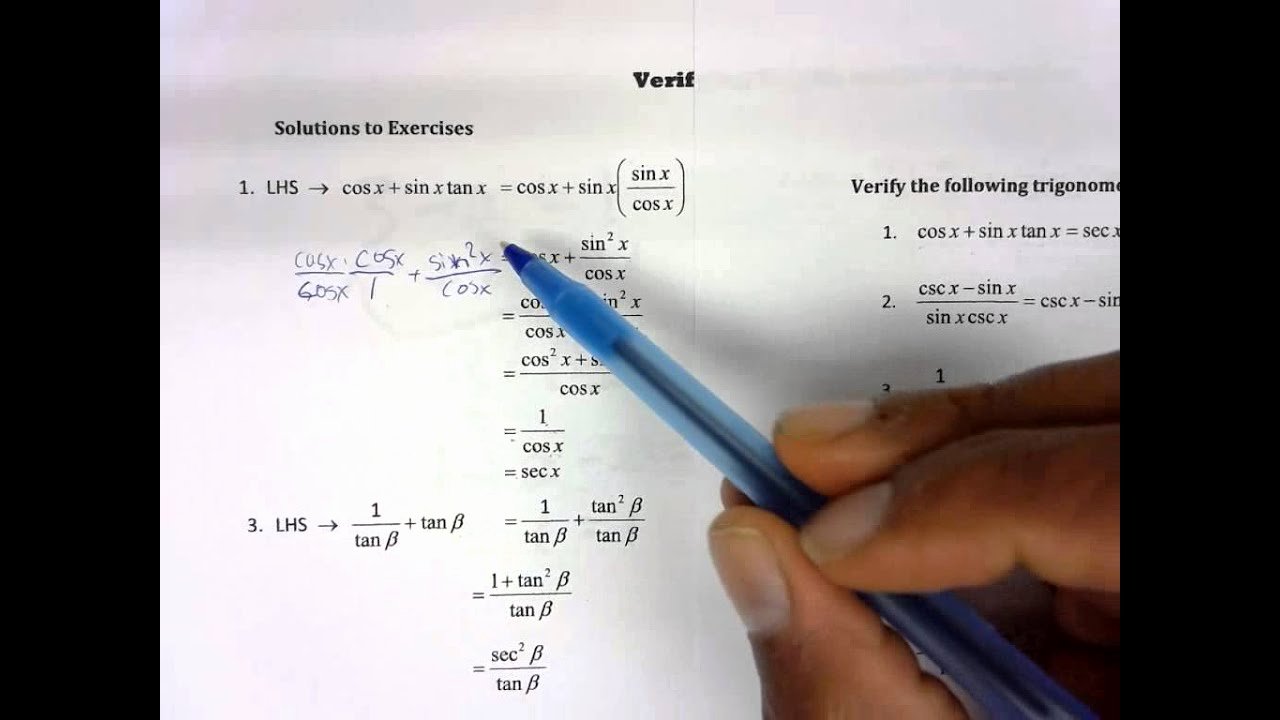 Verif
Solutions to Exercises
1. LHS → cos x + sin x tan x = cos x + sin x (sin x / cos x)
cos x / cos x · cos x / 1 + sin² x / cos x
x + sin² x / cos x
=
cos x
= cos² x + / cos x
= 1 / cos x
= sec x
3. LHS → 1 / tan β + tan β = 1 / tan β + tan² β / tan β
= 1 + tan² β / tan β
= sec² β / tan β
Verify the following
1. cos x + sin x tan x = sec x
2. csc x − sin x / sin x csc x = csc x − sin
1